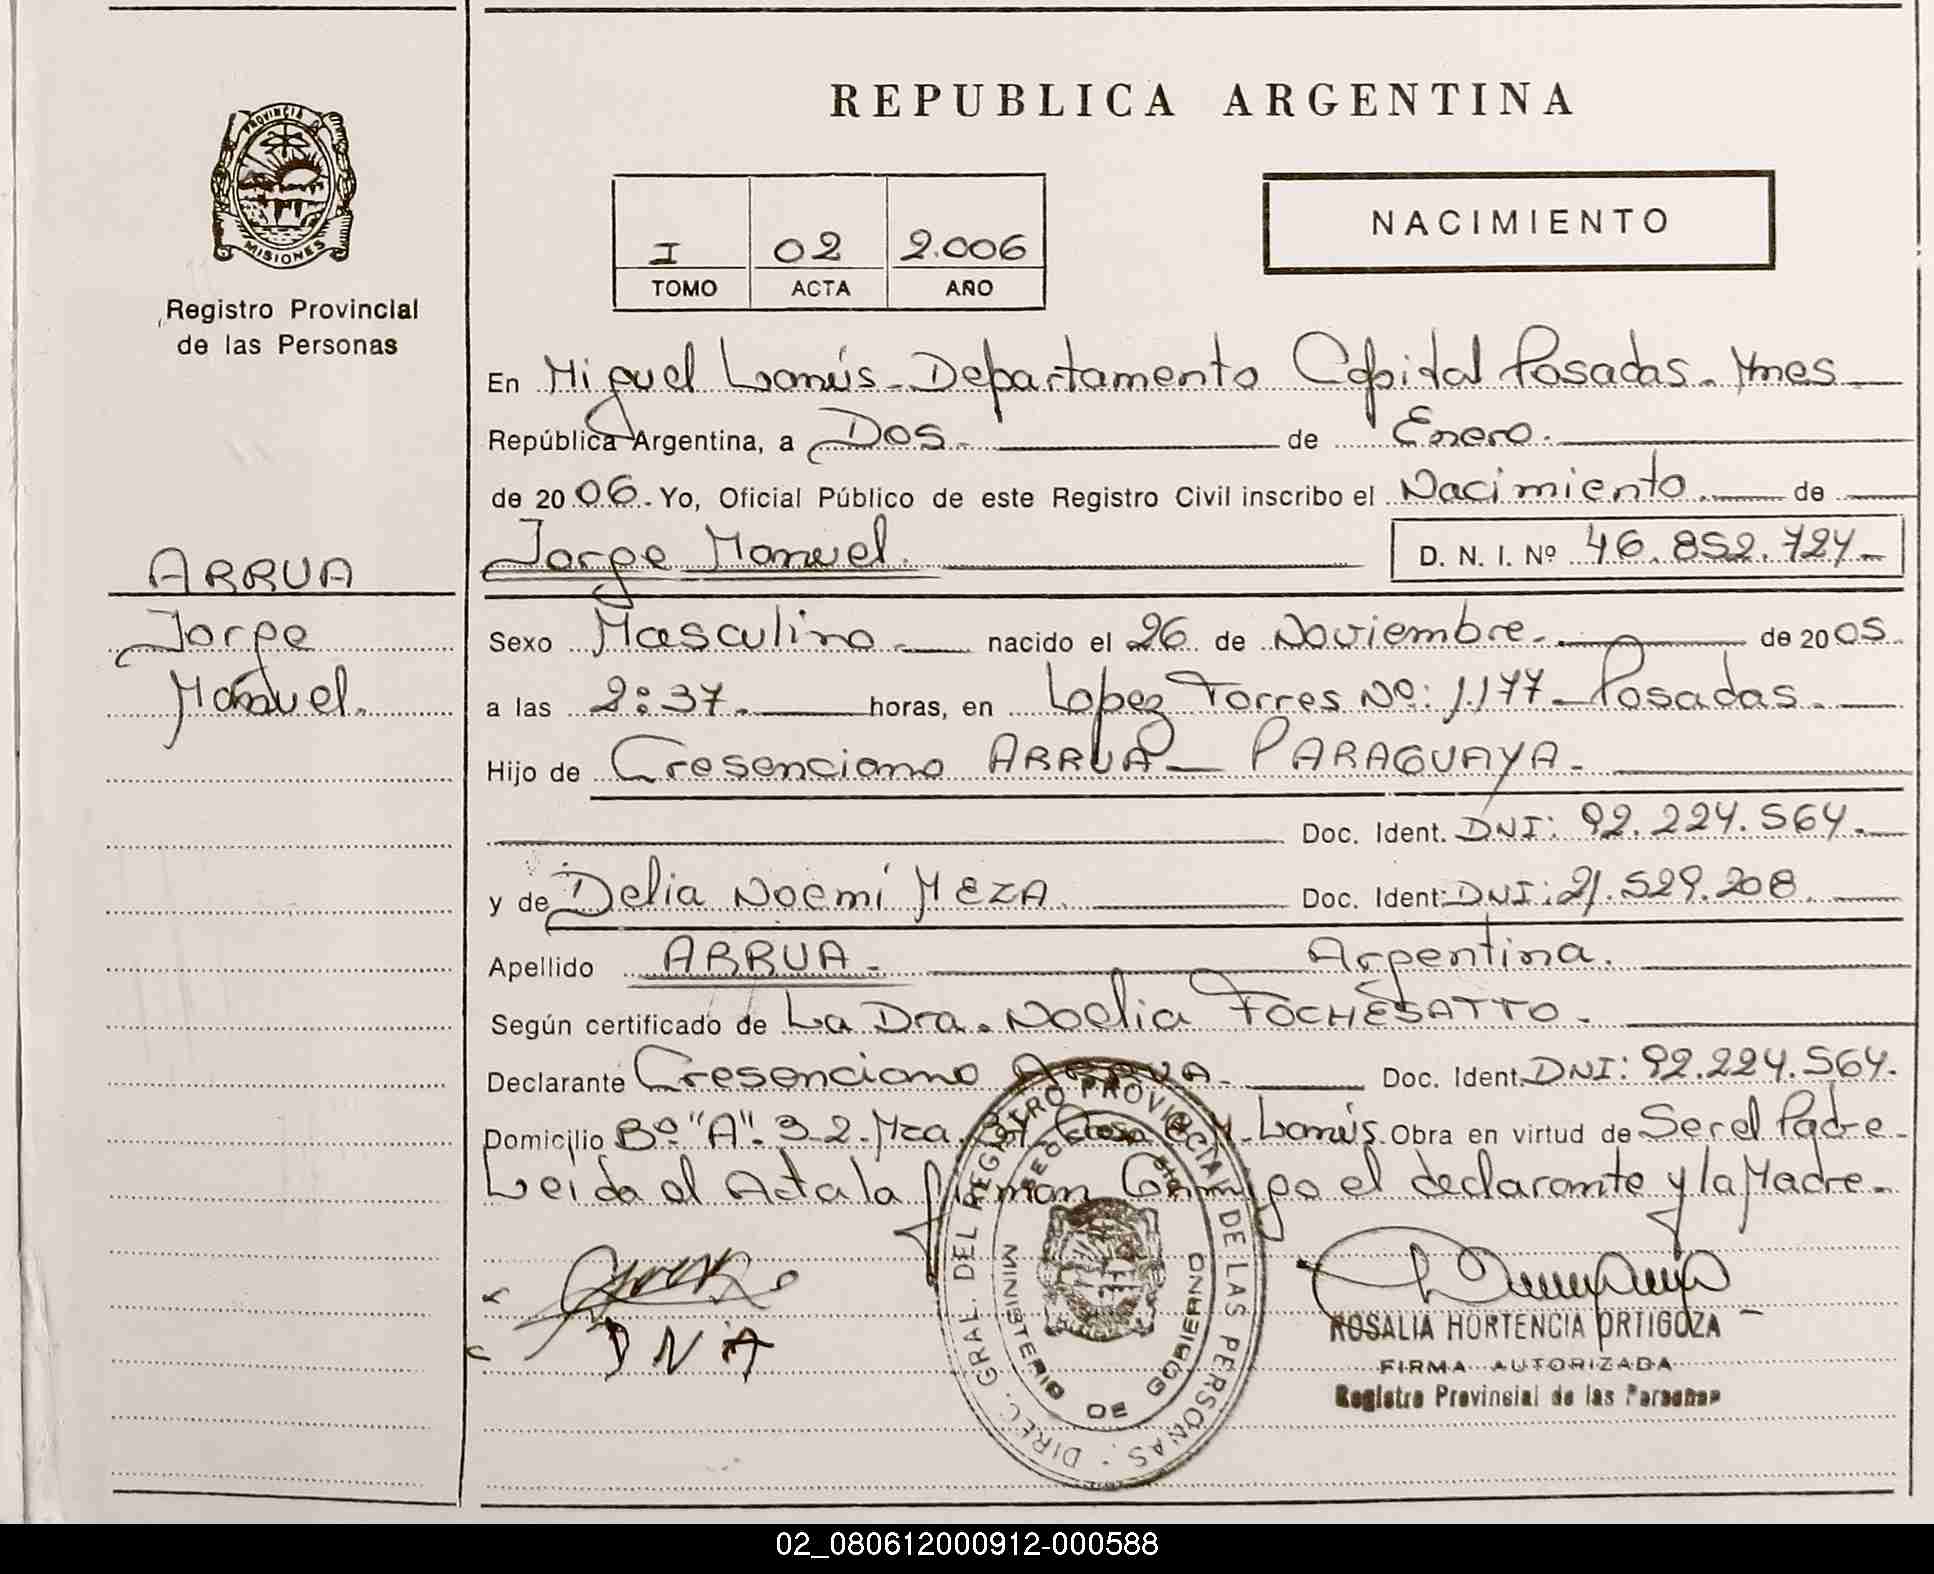 REPUBLICA ARGENTINA
PROVINCIA D
MISIONES
Registro Provincial
de las Personas
I 02 2.006
TOMO ACTA AÑO
NACIMIENTO
En Miguel Lanús - Departamento Capital Posadas. Mnes
República Argentina, a Dos. de Enero.
de 2006. Yo, Oficial Público de este Registro Civil inscribo el Nacimiento. de
Jorge Manuel. D. N. I. Nº 46.852.724-
ARRUA
Jorge
Manuel.
Sexo Masculino nacido el 26 de Noviembre. de 2005
a las 2:37. horas, en Lopez Torres Nº: 1177 - Posadas.
Hijo de Cresenciano ARRUA - PARAGUAYA.
Doc. Ident. DNI: 92.224.564.
y de Delia Noemí MEZA. Doc. Ident: DNI: 21.529.208.
Apellido ARRUA. Argentina.
Según certificado de La Dra. Noelia FOCHESATTO.
Declarante Cresenciano ARRUA. Doc. Ident. DNI: 92.224.564.
Domicilio Bº "A". 3-2. Mza. Casa Lanús. Obra en virtud de Ser el Padre.
Leida el Acta la firman Conmigo el declarante y la Madre.
DNA
DIREC. GRAL. DEL REGISTRO PROVINCIAL DE LAS PERSONAS
MINISTERIO DE GOBIERNO
ROSALIA HORTENCIA ORTIGOZA
FIRMA AUTORIZADA
Registro Provincial de las Personas
02_080612000912-000588